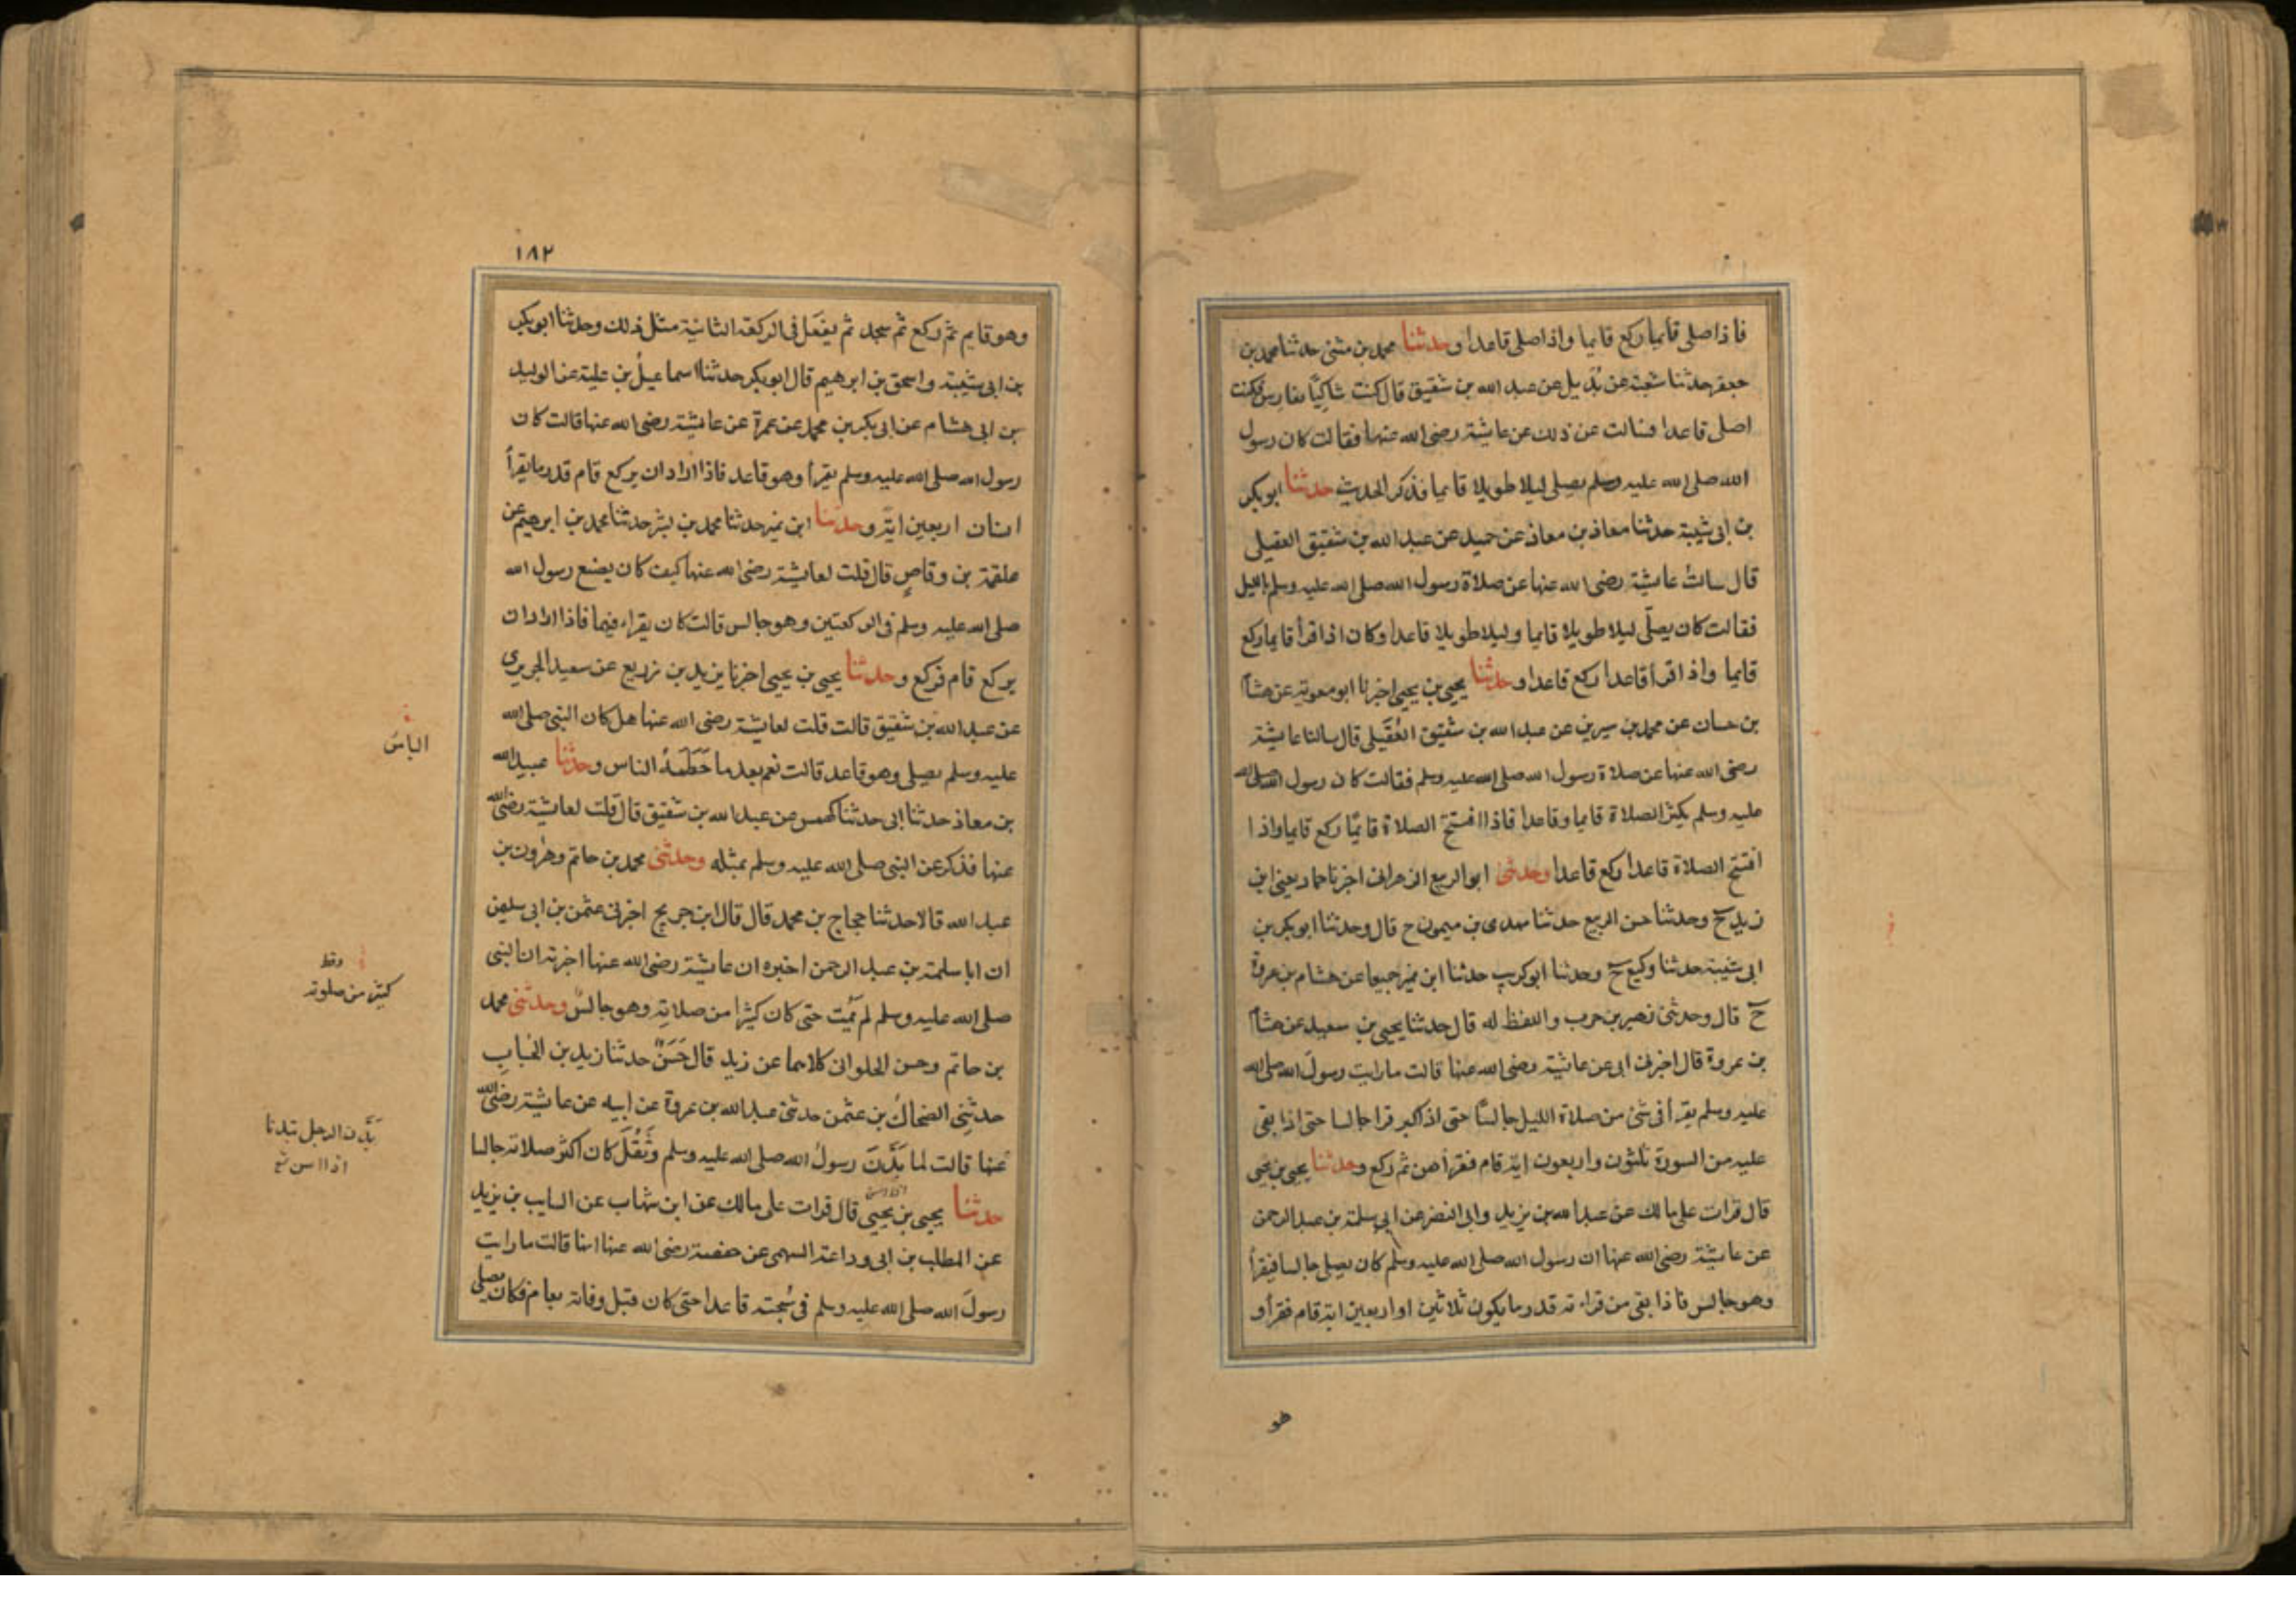 فاذا صلى قايما ركع قايما واذا صلى قاعدا وحدثنا محمد بن مثنى حدثنا محمد بن
جعفر حدثنا شعبة عن بُدَيل عن عبد الله بن شقيق قال كنت شاكِيًا بفارس فكنت
اصلى قاعدا فسالت عن ذلك عن عايشة رضى الله عنها فقالت كان رسول
الله صلى الله عليه وسلم يصلى ليلا طويلا قايما فذكر الحديث حدثنا ابو بكر
بن ابى شيبة حدثنا معاذ بن معاذ عن حميد عن عبد الله بن شقيق العقيلى
قال سالتُ عايشة رضى الله عنها عن صلاة رسول الله صلى الله عليه وسلم بالليل
فقالت كان يصلّى ليلا طويلا قايما وليلا طويلا قاعدا وكان اذا قرأ قايما ركع
قايما واذا قرأ قاعدا ركع قاعدا وحدثنا يحيى بن يحيى اخبرنا ابو معوية عن هشام
بن حسان عن محمد بن سيرين عن عبد الله بن شقيق العُقَيلى قال سالنا عايشة
رضى الله عنها عن صلاة رسول الله صلى الله عليه وسلم فقالت كان رسول الله صلى الله
عليه وسلم يكثر الصلاة قايما وقاعدا فاذا افتتح الصلاة قايمًا ركع قايما واذا
افتتح الصلاة قاعدا ركع قاعدا وحدثنى ابو الربيع الزهرانى اخبرنا حماد يعنى ابن
زيد ح وحدثنا حسن الربيع حدثنا مهدى بن ميمون ح قال وحدثنا ابو بكر بن
ابى شيبة حدثنا وكيع ح وحدثنا ابو كريب حدثنا ابن نمير جميعا عن هشام بن عروة
ح قال وحدثنى زهير بن حرب واللفظ له قال حدثنا يحيى بن سعيد عن هشام
بن عروة قال اخبرنى ابى عن عايشة رضى الله عنها قالت ما رايت رسولَ الله صلى الله
عليه وسلم يقرأ فى شئ من صلاة الليل جالسًا حتى اذا كبر قرا جالسا حتى اذا بقى
عليه من السورة ثلثون واربعون اية قام فقرأهن ثم ركع وحدثنا يحيى بن يحيى
قال قرات على مالك عن عبد الله بن يزيد وابى النضر عن ابى سلمة بن عبد الرحمن
عن عايشة رضى الله عنها ان رسول الله صلى الله عليه وسلم كان يصلى جالسا فيقرأ
وهو جالس فاذا بقى من قراءته قدر ما يكون ثلاثين او اربعين اية قام فقرأ و
هو
١٨٢
وهو قايم ثم ركع ثم سجد ثم يفعل فى الركعة الثانية مثل ذلك وحدثنا ابو بكر
بن ابى شيبة واسحق بن ابرهيم قال ابو بكر حدثنا اسماعيلُ بن علية عن الوليد
بن ابى هشام عن ابى بكر بن محمد عن عمرة عن عايشة رضى الله عنها قالت كان
رسول الله صلى الله عليه وسلم يقرأ وهو قاعد فاذا اراد ان يركع قام قدر ما يقرأ
انسان اربعين اية وحدثنا ابن نمير حدثنا محمد بن بشر حدثنا محمد بن ابرهيم عن
علقمة بن وقاصٍ قال قلت لعايشة رضى الله عنها كيف كان يصنع رسول الله
صلى الله عليه وسلم فى الركعتين وهو جالس قالت كان يقراء فيهما فاذا اراد ان
يركع قام فركع وحدثنا يحيى بن يحيى اخبرنا يزيد بن زريع عن سعيد الجريرى
عن عبد الله بن شقيق قالت قلت لعايشة رضى الله عنها هل كان النبى صلى الله
عليه وسلم يصلى وهو قاعد قالت نعم بعد ما حَطَمَهُ الناس وحدثنا عبيد الله
الباسُ
بن معاذ حدثنا ابى حدثنا كهمس عن عبد الله بن شقيق قال قلت لعايشة رضى الله
عنها فذكر عن النبى صلى الله عليه وسلم بمثله وحدثنى محمد بن حاتم وهرون بن
عبد الله قالا حدثنا حجاج بن محمد قال قال ابن جريج اخبرنى عثمن بن ابى سليمن
ان ابا سلمة بن عبد الرحمن اخبره ان عايشة رضى الله عنها اخبرته ان النبى
صلى الله عليه وسلم لم يَمُت حتى كان كثيرا من صلاته وهو جالسٌ وحدثنى محمد
كثير من صلوته
بن حاتم وحسن الحلوانى كلاهما عن زيد قال حَسَنٌ حدثنا زيد بن الحُبابِ
حدثنِى الضحاكُ بن عثمن حدثنى عبد الله بن عروة عن ابيه عن عايشة رضى الله
عنها قالت لما بَدَّنَ رسولُ الله صلى الله عليه وسلم وثَقُلَ كان اكثر صلاته جالسا
بَدَّن الرجل تبدنا
اذا اسن
حدثنا يحيى بن يحيى قال قرات على مالك عن ابن شهاب عن السايب بن يزيد
عن المطلب بن ابى وداعة السهمى عن حفصة رضى الله عنها انها قالت ما رايت
رسولَ الله صلى الله عليه وسلم فى سُبحته قاعدا حتى كان قبل وفاته بعام فكان يصلى